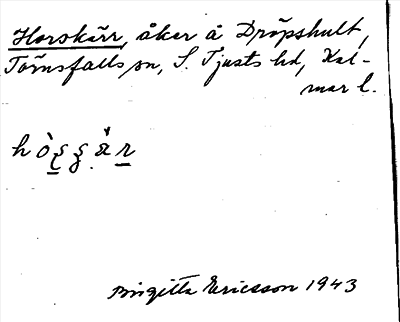 Horskärr, åker å Dröpshult,
Törnsfalls sn, S. Tjusts hd, Kal-
mar l.
Birgitta Ericsson 1943